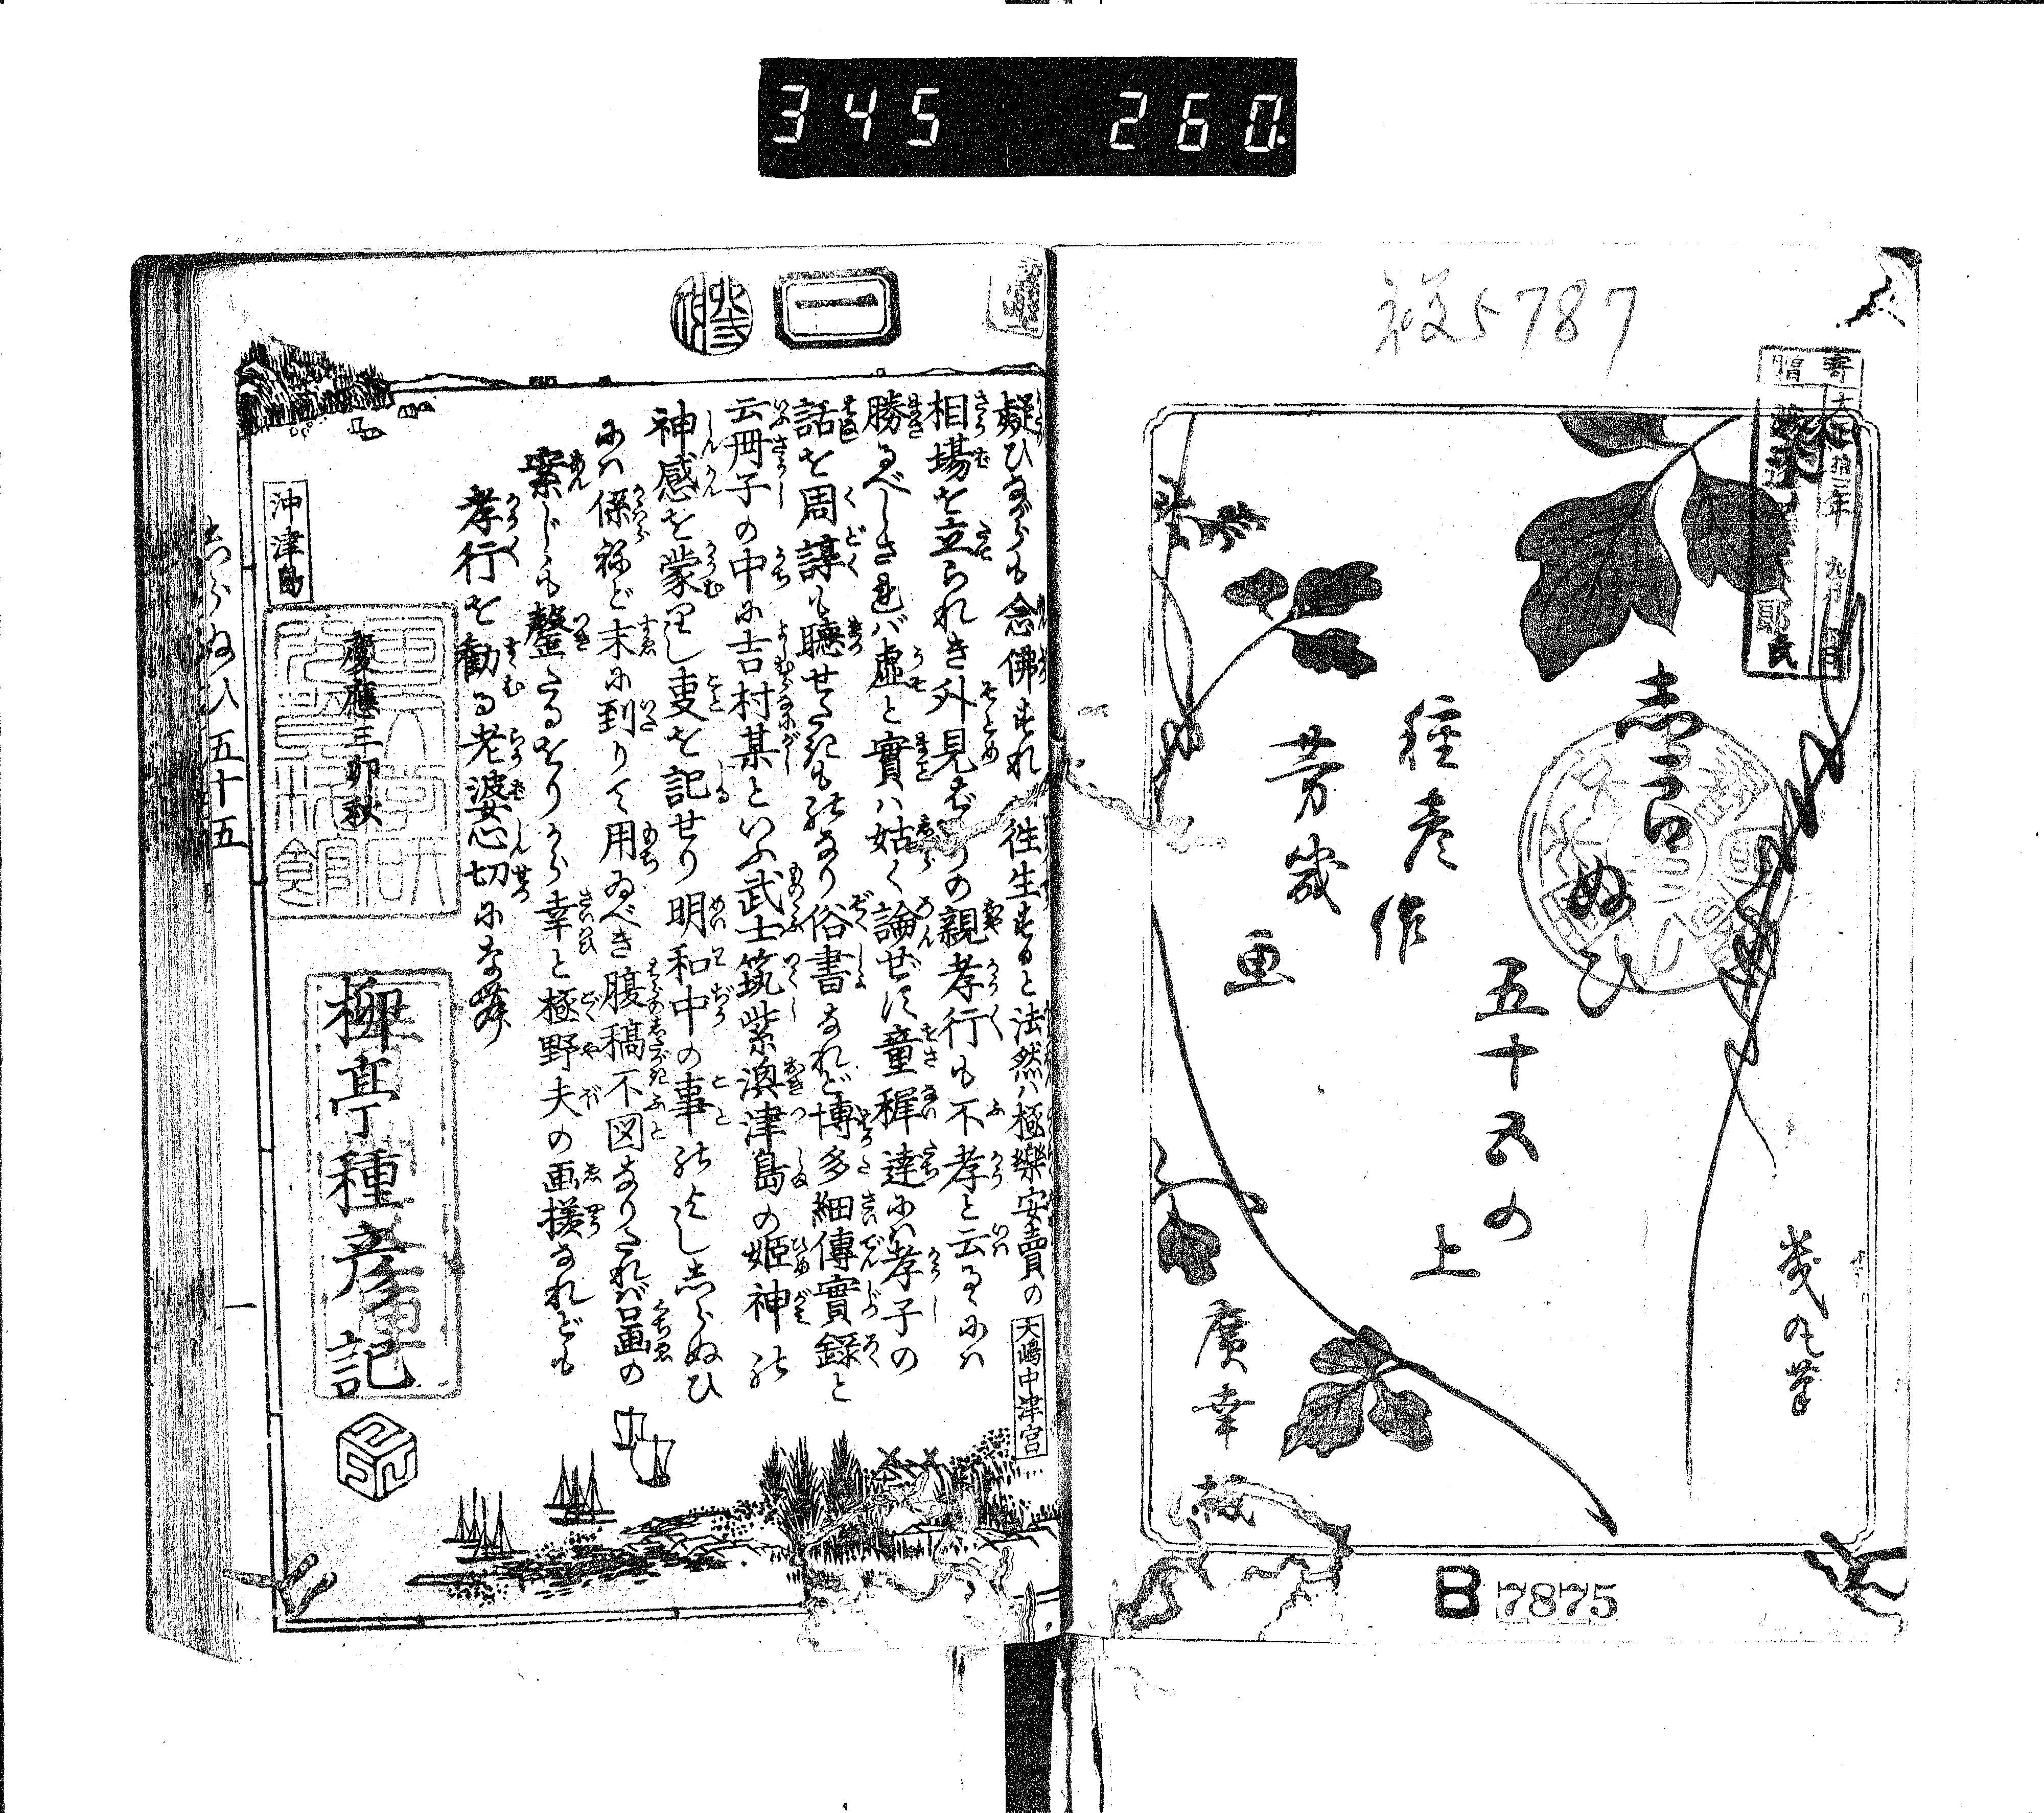 345 260
5787
志らぬひ
五十五の
上
種彦作
芳幾画
廣幸板
B 7875
一
疑ひながらも念佛すれば往生すると法然ハ極樂安賣の
相場を立られき外見ばかりの親孝行も不孝と云るにハ
勝るべしされバ虚と實ハ姑く論ぜず童稺達にハ孝子の
話を周諄も聴せたきものなり俗書なれど博多細傳實録と
云冊子の中に吉村某といふ武士筑紫澳津島の姫神の
神感を蒙りし叓を記せり明和中の事のよし志らぬひ
にハ係ねど末に到りて用ゐべき腹稿不図なりたれバ口画の
案じも鑿たるをりから幸と極野夫の画様なれども
孝行を勸る老婆心切になむ
慶應三卯秋
柳亭種彦記
大嶋中津宮
沖津島
志らぬひ五十五
一